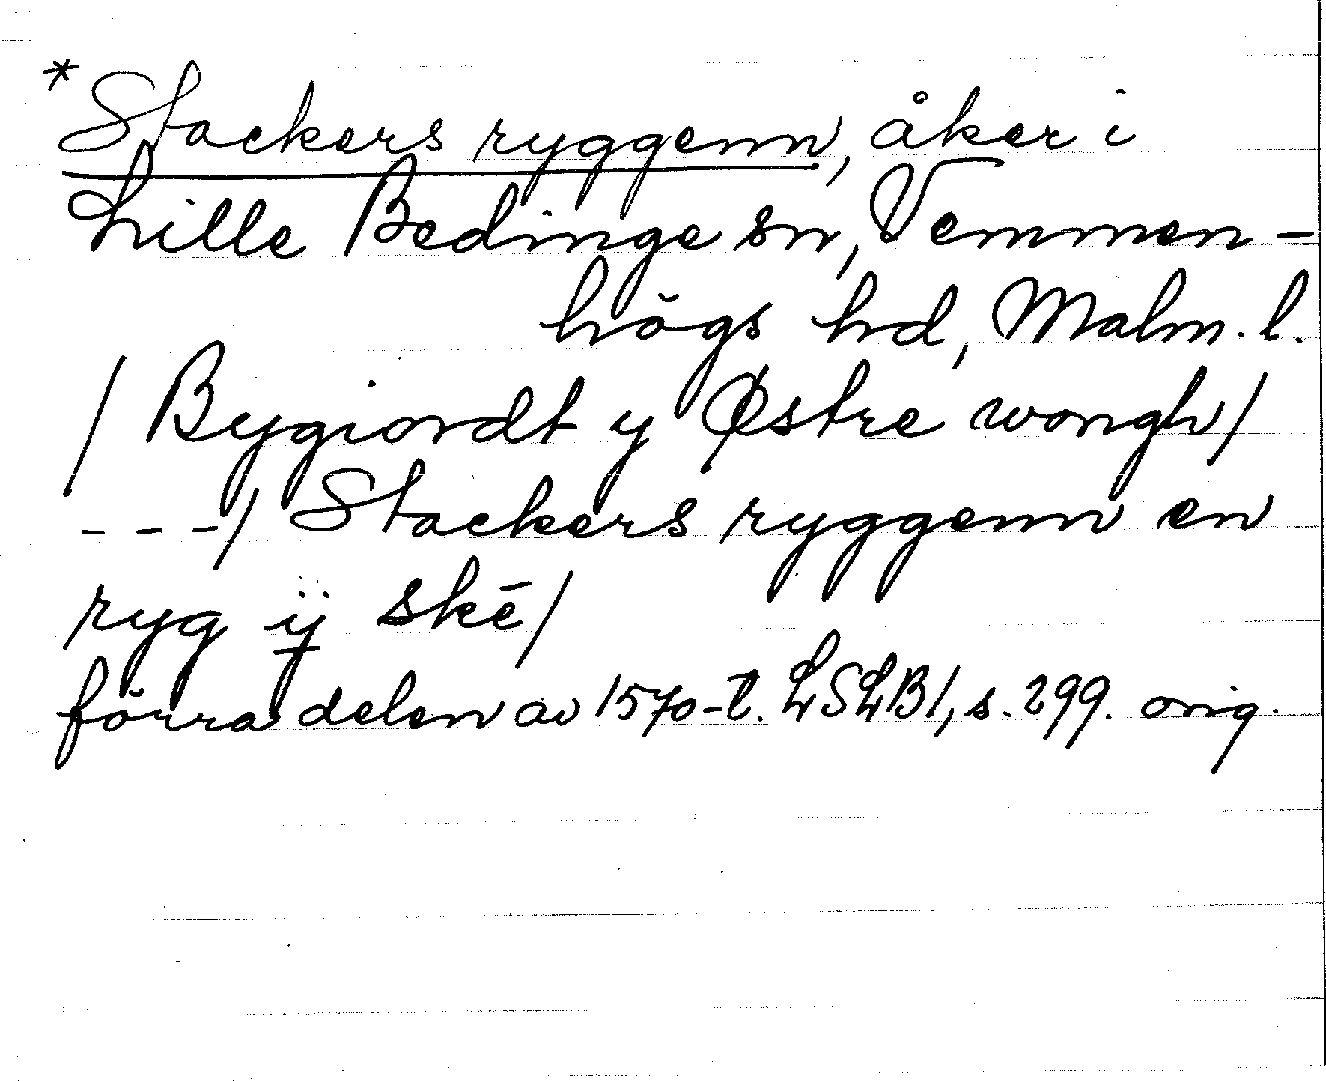 *Stackers ryggenn, åker i
Lille Bedinge sn, Vemmen-
högs hd, Malm. l.
/ Bygiordt y Østre wongh /
- - - / Stackers ryggenn en
ryg ÿ skē /
förra delen av 1570-t. LSLB1, s. 299. orig.